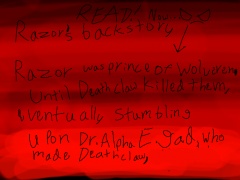 READ! Now
Razor's backstory
Razor was prince of wolverenes
Until Deathclaw killed them,
eventually stumbling
upon Dr. Alpha E gad, who
made Deathclaw